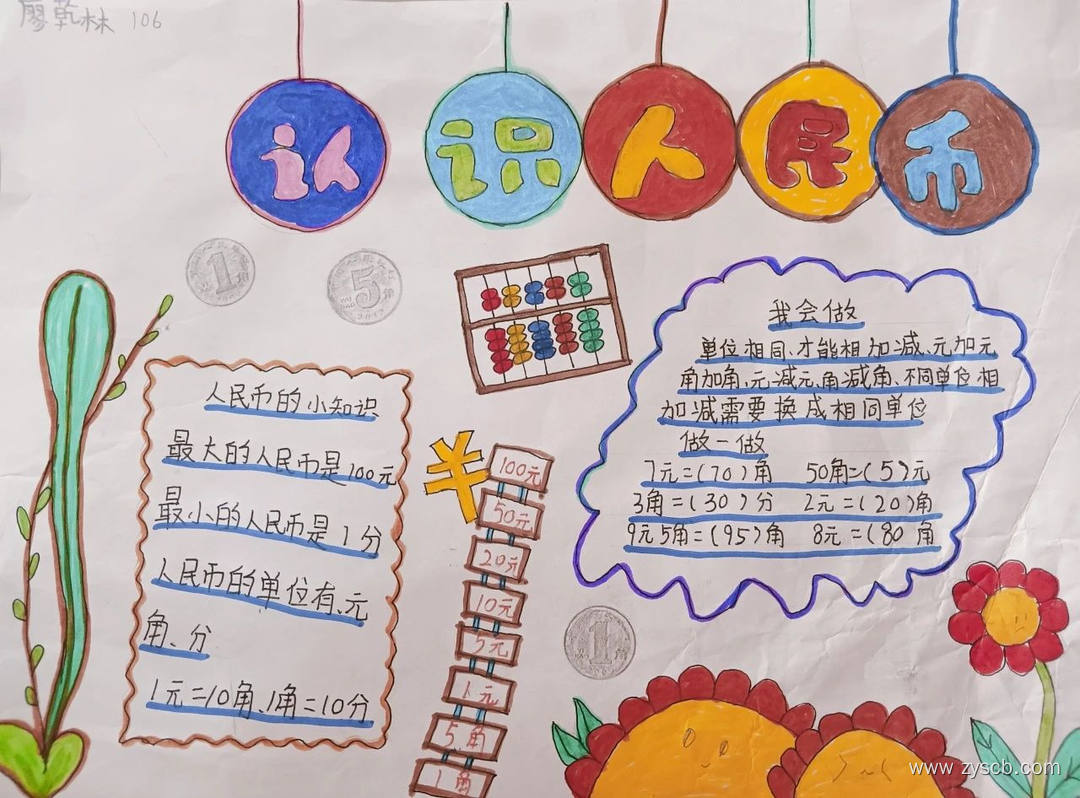 廖乾林 106
认识人民币
1角
5角
人民币的小知识
最大的人民币是100元
最小的人民币是1分
人民币的单位有、元
角、分
1元=10角、1角=10分
¥
100元
50元
20元
10元
5元
1元
5角
1角
我会做
单位相同、才能相加减、元加元
角加角、元减元、角减角、不同单位相
加减需要换成相同单位
做一做
7元=(70)角 50角=(5)元
3角=(30)分 2元=(20)角
9元5角=(95)角 8元=(80 角
1
www.zyscb.com